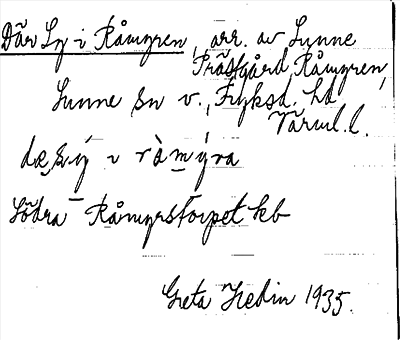 Där Ly i Råmyren, arr. av Sunne
Prästgård, Råmyren,
Sunne sn v., Fryksd. hd
Värml. l.
i ràmýra
Södra Råmyrstorpet kb
Greta Hedin 1935.